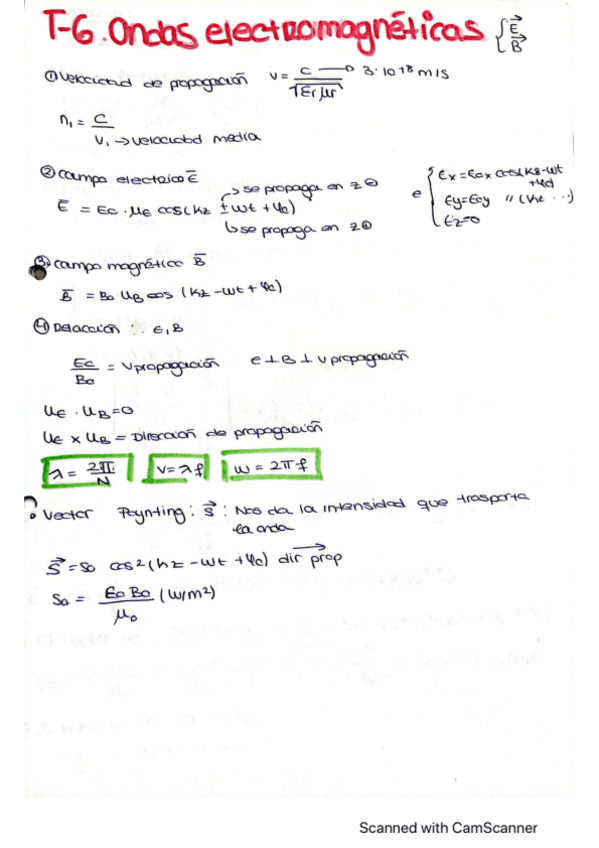 T-6. Ondas electromagnéticas { E⃗ B⃗
① Velocidad de propagación v = c / √εr μr → 3·10^+8 m/s
n₁ = c / v₁ → velocidad media
② Campo electrico E̅
→ se propaga en z ⊖
E̅ = E₀ · μE cos(kz ± wt + φ₀)
↳ se propaga en z ⊕
e { Ex = Eox cos(kz - wt + φ₀)
Ey = Eoy " (kz ...)
Ez = 0
③ Campo magnético B̅
B̅ = B₀ uB cos (kz - wt + φ₀)
④ Relacción : E, B
E₀ / B₀ = v propagación e ⊥ B ⊥ v propagación
uE · uB = 0
uE x uB = Dirección de propagación
λ = 2π / N v = λ f w = 2π f
• Vector Poynting : S⃗ : Nos da la intensidad que trasporta
la onda
S⃗ = S₀ cos² (kz - wt + φ₀) dir prop
S₀ = E₀ B₀ / μ₀ (W/m²)
Scanned with CamScanner